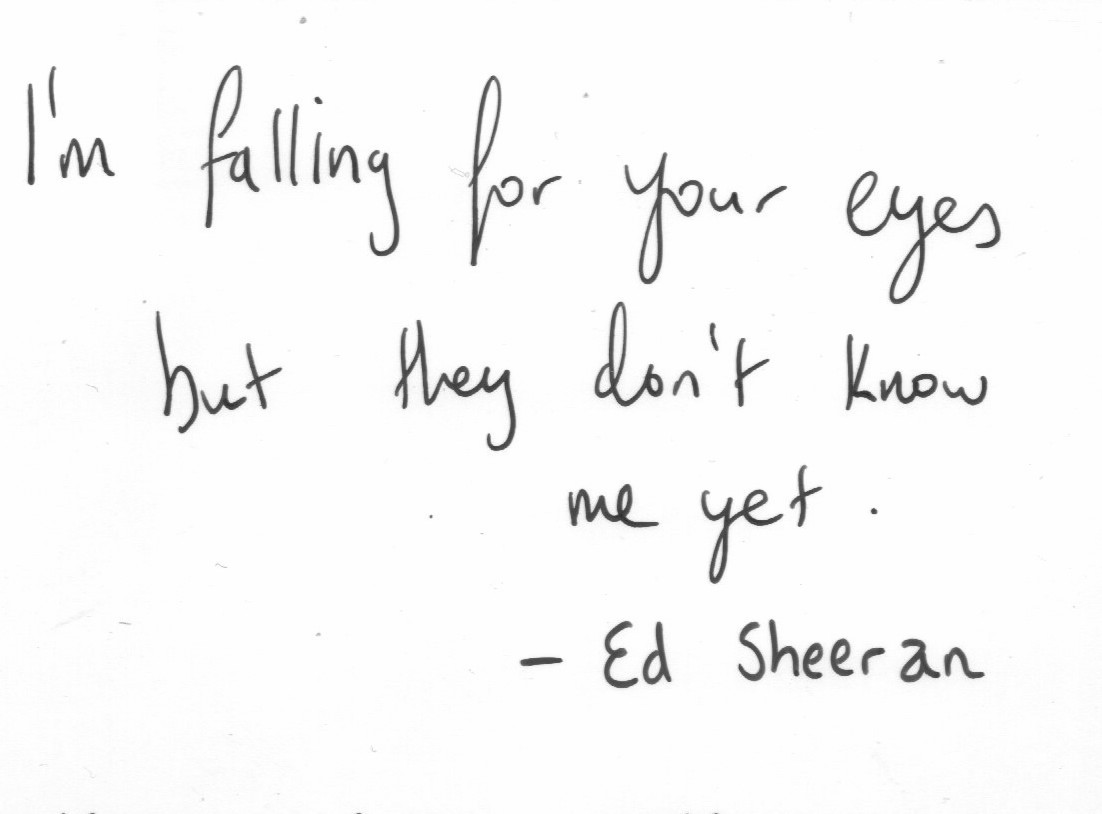 I'm falling for your eyes
but they don't know
me yet.
- Ed Sheeran